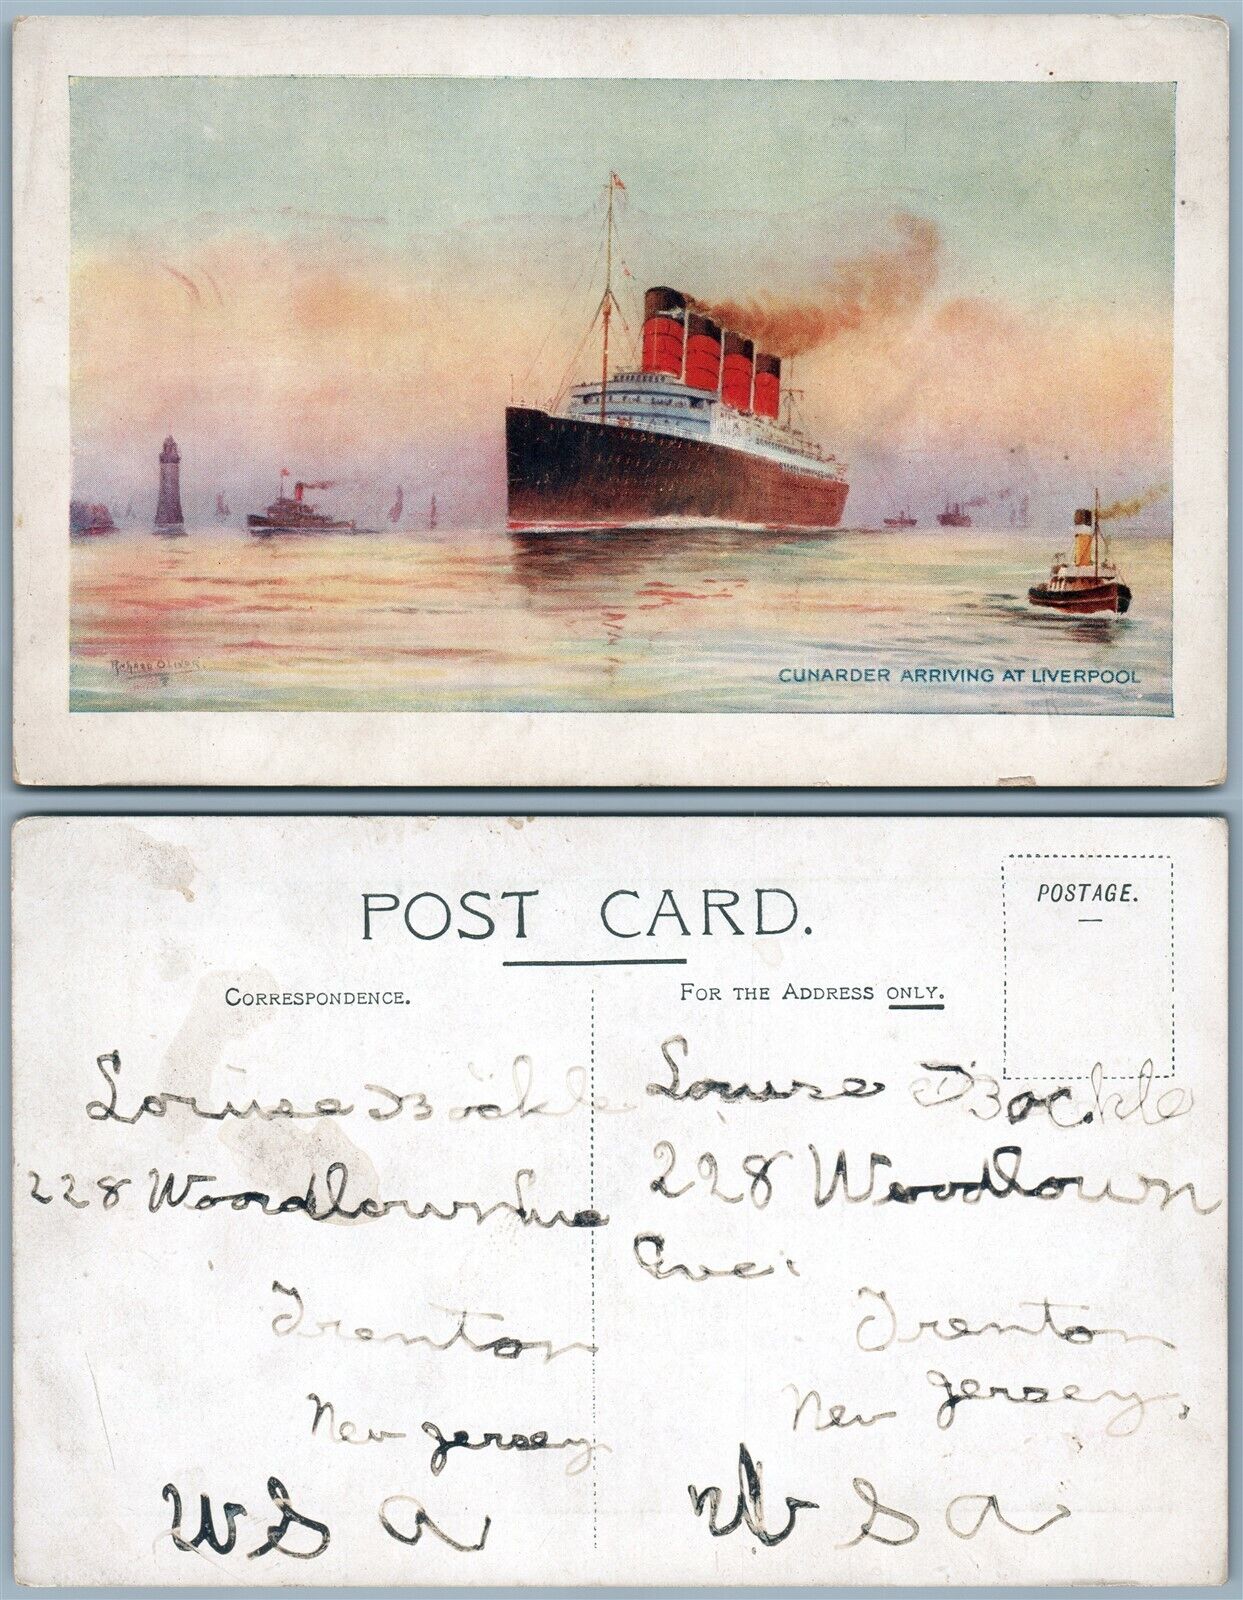 RICHARD OLIVER.
CUNARDER ARRIVING AT LIVERPOOL
POST CARD.
POSTAGE.
CORRESPONDENCE.
FOR THE ADDRESS ONLY.
Louise Böckle
228 Woodlawn Ave
Trenton
New Jersey
U S A
Louise Böckle
228 Woodlawn
Ave.
Trenton
New Jersey,
U S A